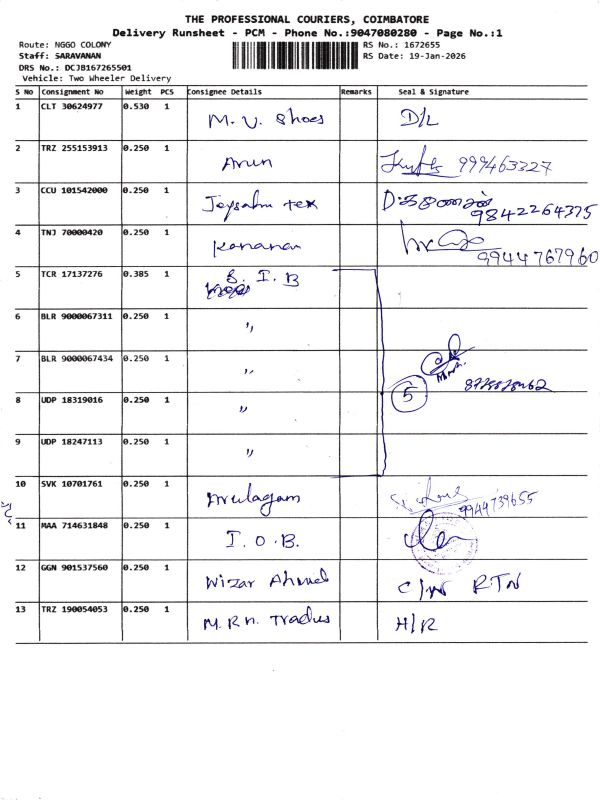 THE PROFESSIONAL COURIERS, COIMBATORE
Delivery Runsheet - PCM - Phone No.:9047080280 - Page No.:1
Route: NGGO COLONY
RS No.: 1672655
Staff: SARAVANAN
RS Date: 19-Jan-2026
DRS No.: DCJB167265501
Vehicle: Two Wheeler Delivery
S No Consignment No Weight PCS Consignee Details Remarks Seal & Signature
1 CLT 30624977 0.530 1 M. U. Shoes D/L
2 TRZ 255153913 0.250 1 Arun 999463327
3 CCU 101542000 0.250 1 tex 9842264375
4 TNJ 70000420 0.250 1 Kannan 9944767960
5 TCR 17137276 0.385 1 S. I. B
6 BLR 9000067311 0.250 1 "
7 BLR 9000067434 0.250 1 "
5
8 UDP 18319016 0.250 1 "
9 UDP 18247113 0.250 1 "
10 SVK 10701761 0.250 1 Arulagam 9944739655
11 MAA 714631848 0.250 1 I. O. B.
12 GGN 901537560 0.250 1 Wizar Ahmed C/N RTN
13 TRZ 190054053 0.250 1 M. R. N. Traders H/R